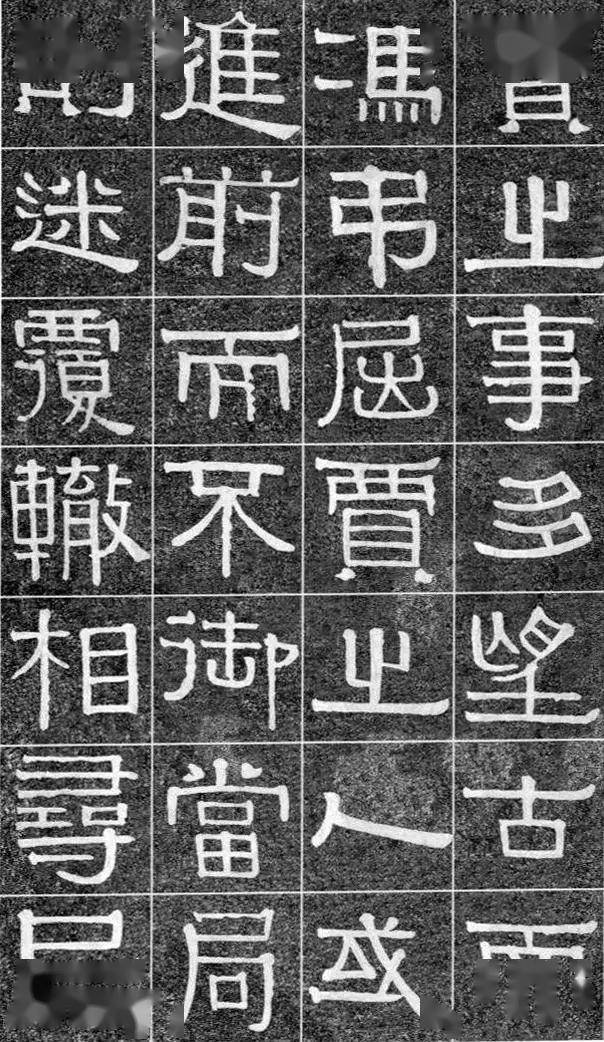 之事多望古
馮弔屈賈之人或
進前而不御當局
迷覆轍相尋